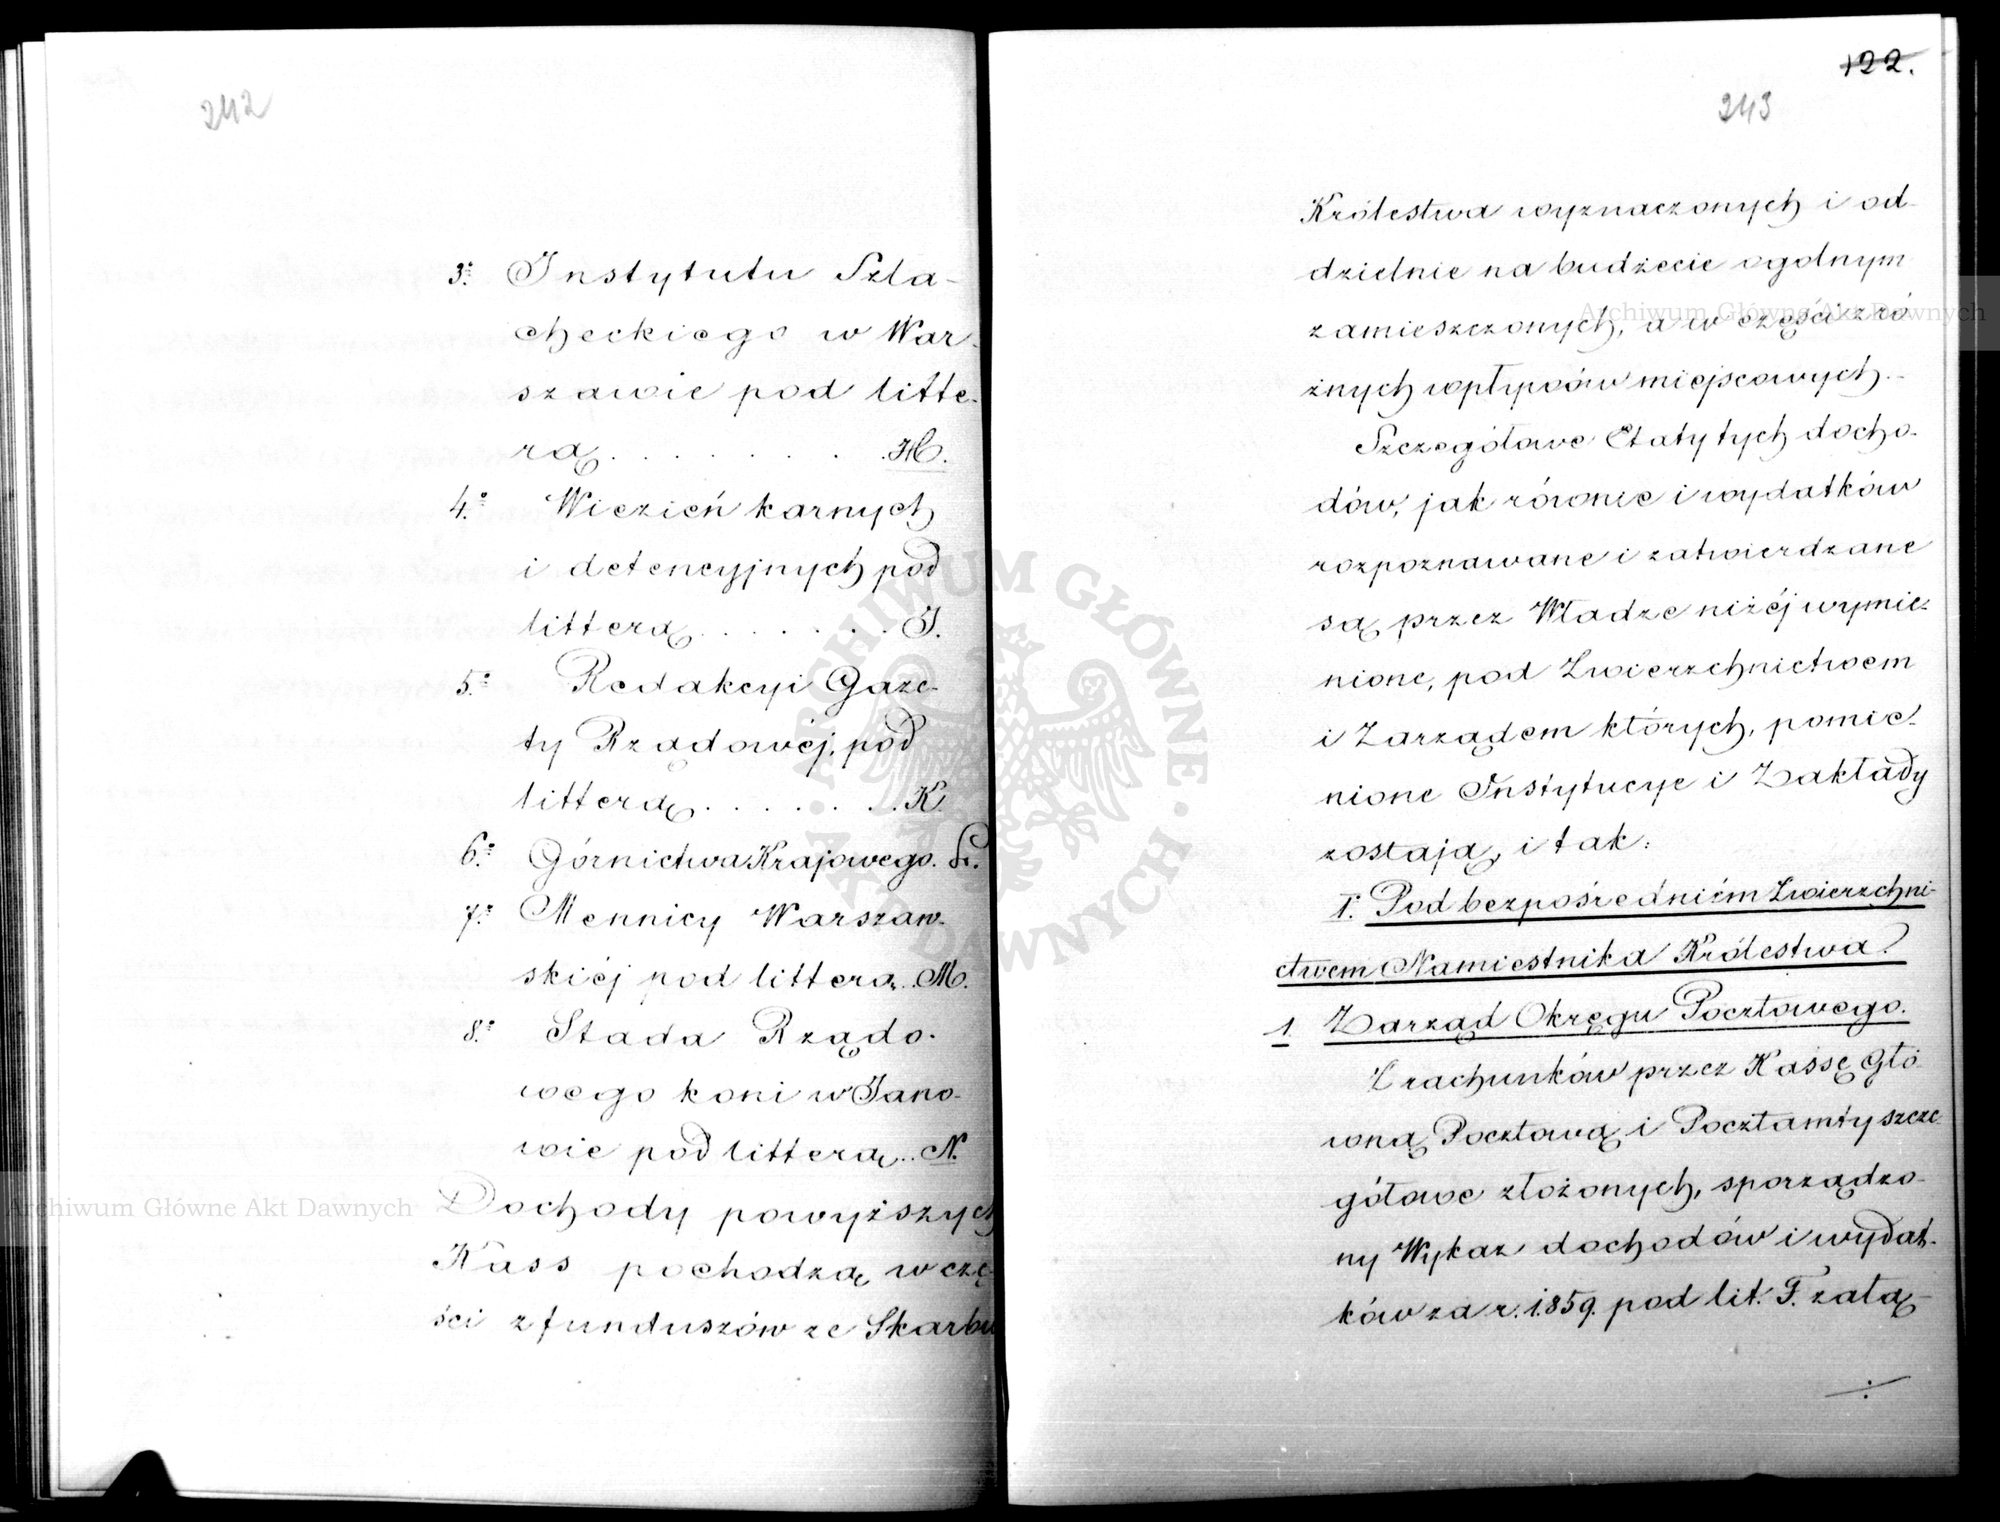 242
3º Instytutu Szla-
checkiego w War-
szawie pod litte-
rą . . . . . . . . H.
4º Wiezień karnych
i detencyjnych pod
litterą . . . . . . . J.
5º Redakcyi Gaze-
ty Rządowéj, pod
litterą . . . . . . . K
6º Górnictwa Krajowego. L.
7º Mennicy Warszaw-
skiéj pod litterą . M.
8º Stada Rządo-
wego koni w Jano-
wie pod litterą .. N.
Dochody powyższych
Kass pochodzą w czę-
ści z funduszów ze Skarbu
122.
243
Królestwa wyznaczonych i od-
dzielnie na budżecie ogolnym
zamieszczonych, a w części z ró-
żnych wpływów miejscowych.-
Szczegółowe Etaty tych docho-
dów, jak równie i wydatków
rozpoznawane i zatwierdzane
są przez Władze niżéj wymie-
nione, pod Zwierzchnictwem
i Zarządem których, pomie-
nione Instytucye i Zakłady
zostają, i tak:
I. Pod bezpośredniém Zwierzchni-
ctwem Namiestnika Królestwa.
1. Zarząd Okręgu Pocztowego.
Z rachunków przez Kassę Głó-
wną Pocztową i Pocztamty szcze-
gółowe złożonych, sporządzo-
ny Wykaz dochodów i wydat-
ków za r. 1859. pod lit. F. załą-
Archiwum Główne Akt Dawnych
Archiwum Główne Akt Dawnych
ARCHIWUM GŁÓWNE · AKT DAWNYCH ·